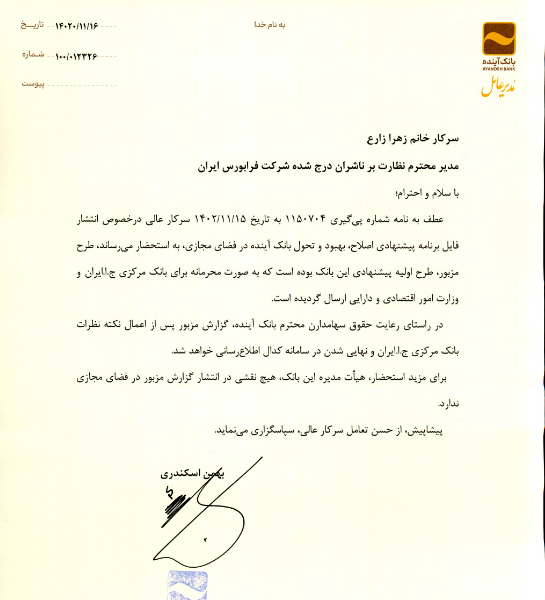 به نام خدا
تاریخ ۱۴۰۲۰/۱۱/۱۶
شماره ۱۰۰/۰۱۲۳۲۶
پیوست
بانک آینده
AYANDEH BANK
مدیرعامل
سرکار خانم زهرا زارع
مدیر محترم نظارت بر ناشران درج شده شرکت فرابورس ایران
با سلام و احترام؛
عطف به نامه شماره پی‌گیری ۱۱۵۰۷۰۴ به تاریخ ۱۴۰۲/۱۱/۱۵ سرکار عالی درخصوص انتشار
فایل برنامه پیشنهادی اصلاح، بهبود و تحول بانک آینده در فضای مجازی، به استحضار می‌رساند، طرح
مزبور، طرح اولیه پیشنهادی این بانک بوده است که به صورت محرمانه برای بانک مرکزی ج.ا.ایران و
وزارت امور اقتصادی و دارایی ارسال گردیده است.
در راستای رعایت حقوق سهامدارن محترم بانک آینده، گزارش مزبور پس از اعمال نکته نظرات
بانک مرکزی ج.ا.ایران و نهایی شدن در سامانه کدال اطلاع‌رسانی خواهد شد.
برای مزید استحضار، هیأت مدیره این بانک، هیچ نقشی در انتشار گزارش مزبور در فضای مجازی
ندارد.
پیشاپیش، از حسن تعامل سرکار عالی، سپاسگزاری می‌نماید.
بهمن اسکندری